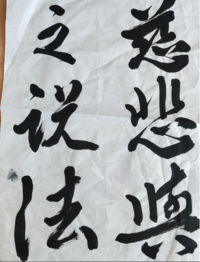 慈悲與
之说法